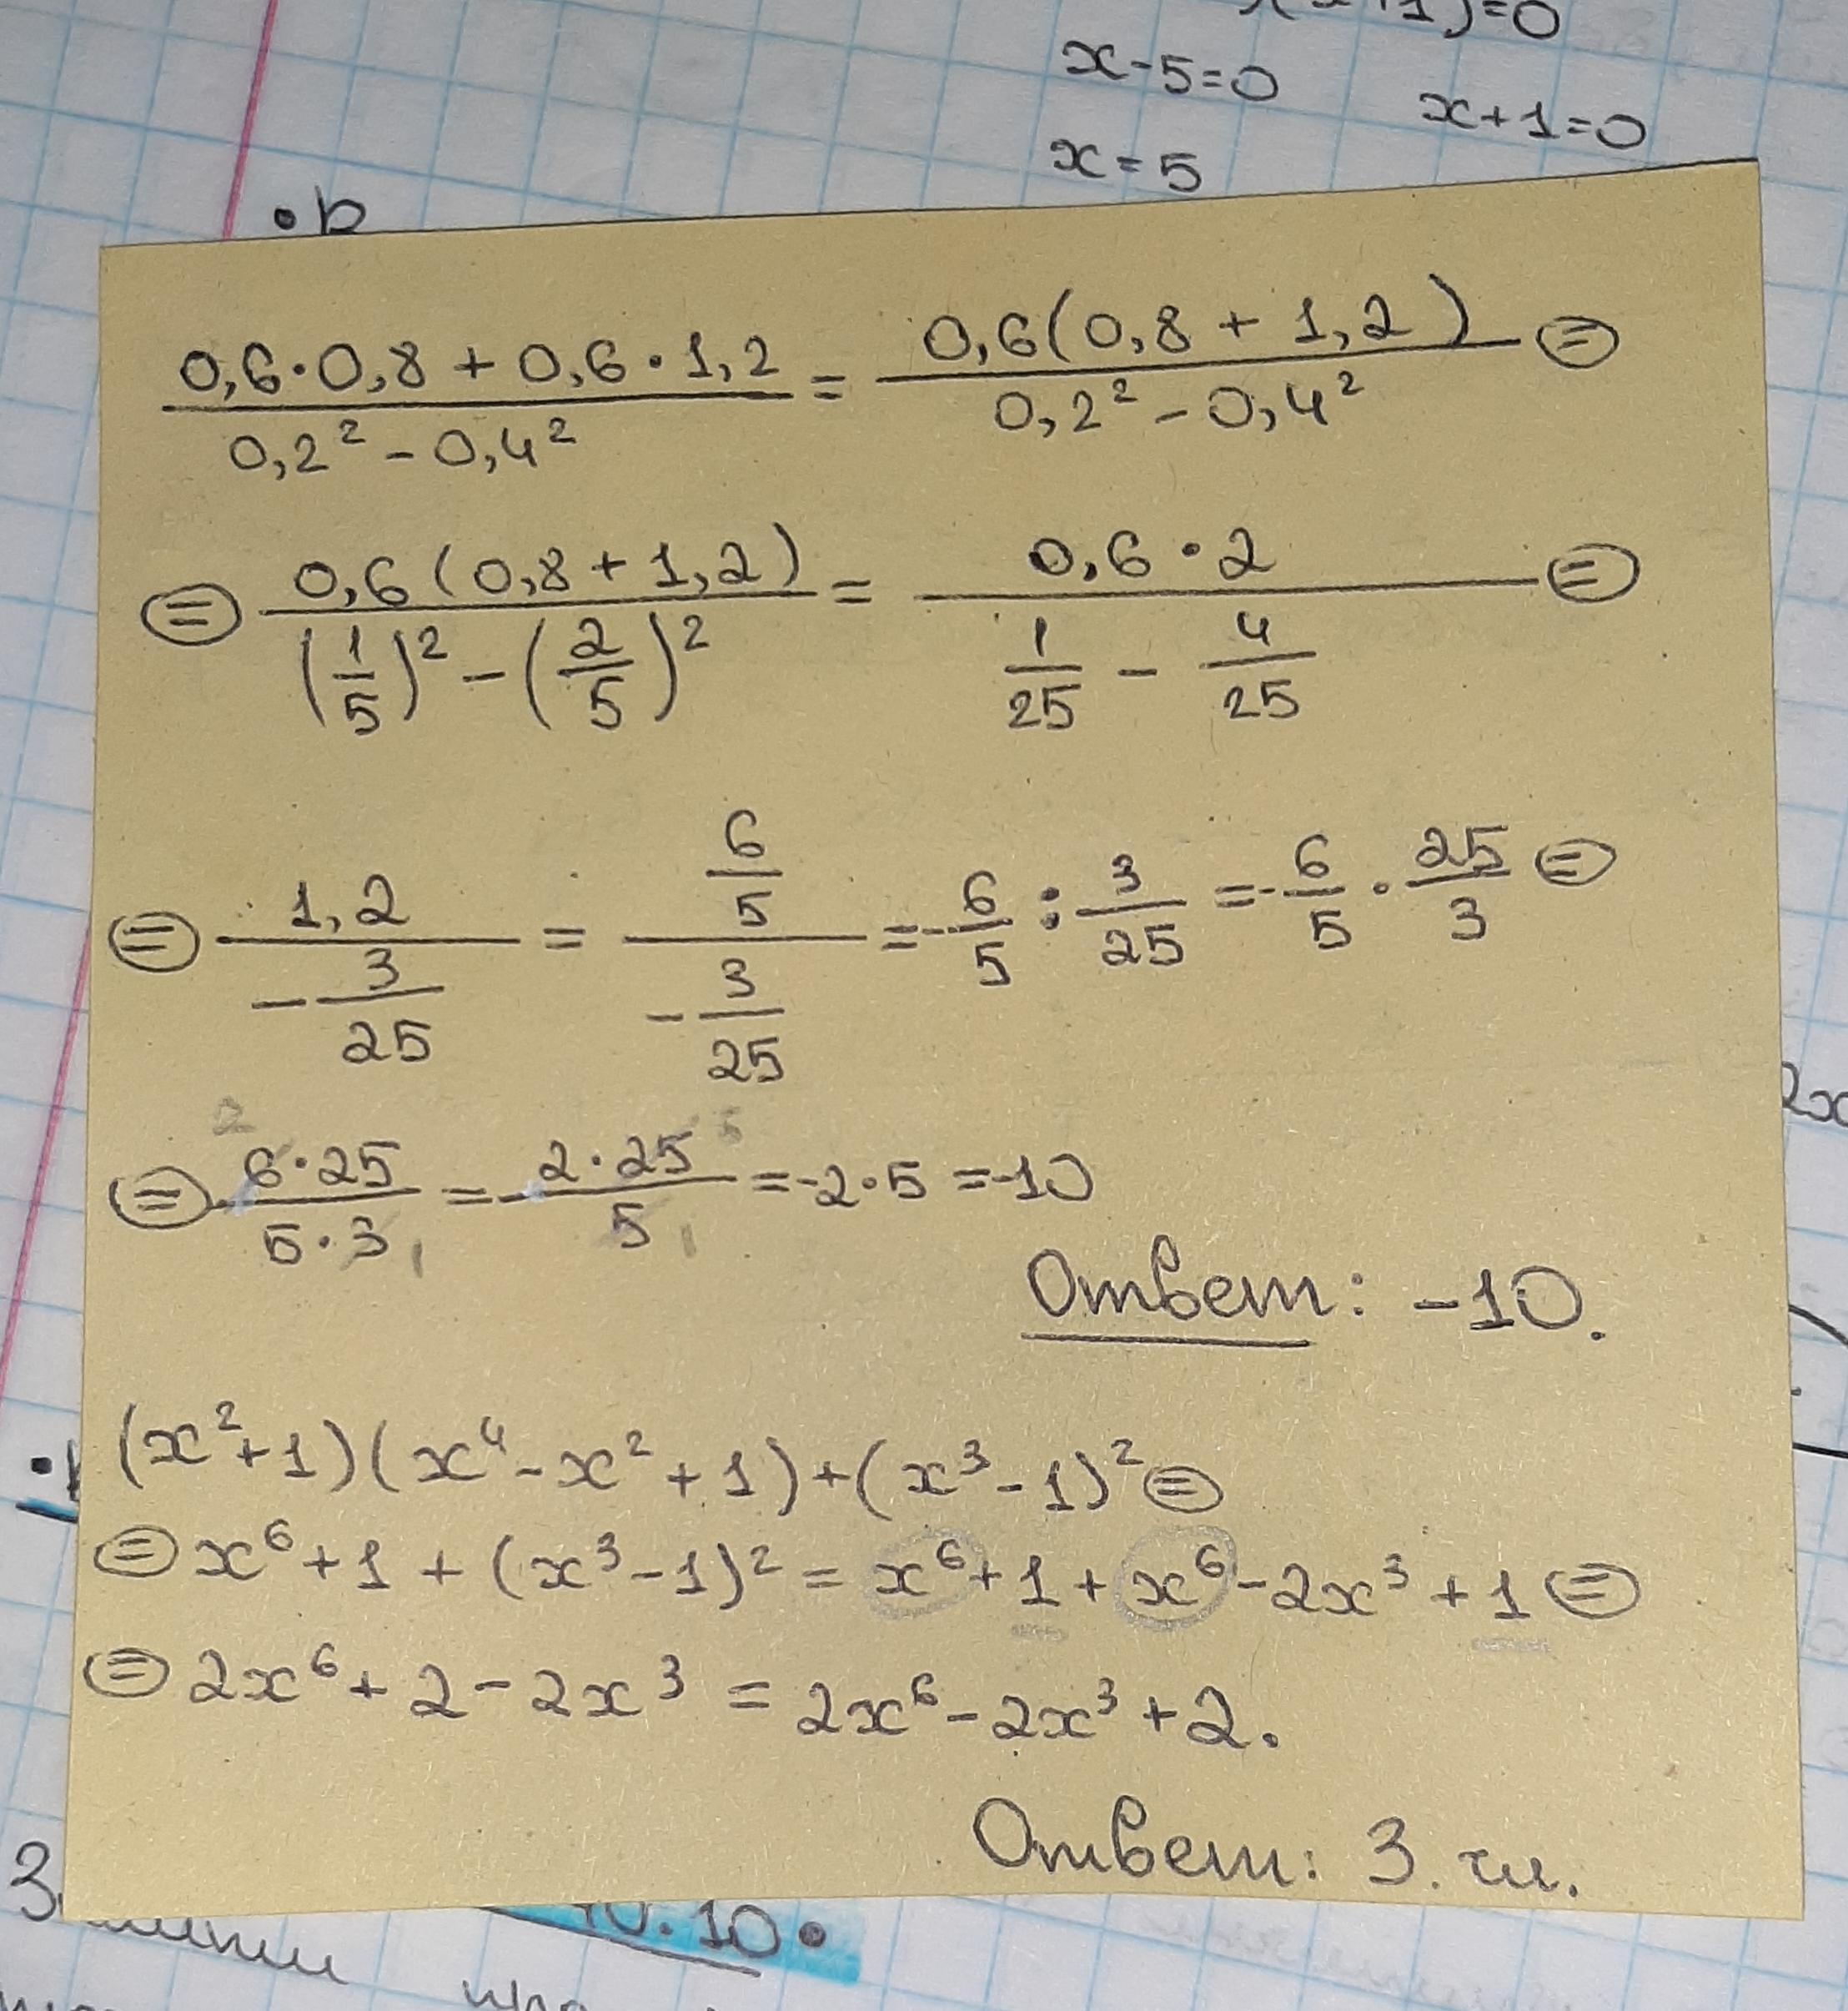 x-5=0
x+1=0
x=5
(0,6·0,8+0,6·1,2)/(0,2²-0,4²) = 0,6(0,8+1,2)/(0,2²-0,4²) ⊜
⊜ 0,6(0,8+1,2)/((1/5)²-(2/5)²) = 0,6·2/(1/25 - 4/25) ⊜
⊜ 1,2/(-3/25) = (6/5)/(-3/25) = -6/5 : 3/25 = -6/5 · 25/3 ⊜
⊜ -6·25/(5·3) = -2·25/5 = -2·5 = -10
Ответ: -10.
(x²+1)(x⁴-x²+1)+(x³-1)² ⊜
⊜ x⁶+1+(x³-1)² = x⁶+1+x⁶-2x³+1 ⊜
⊜ 2x⁶+2-2x³ = 2x⁶-2x³+2.
Ответ: 3.